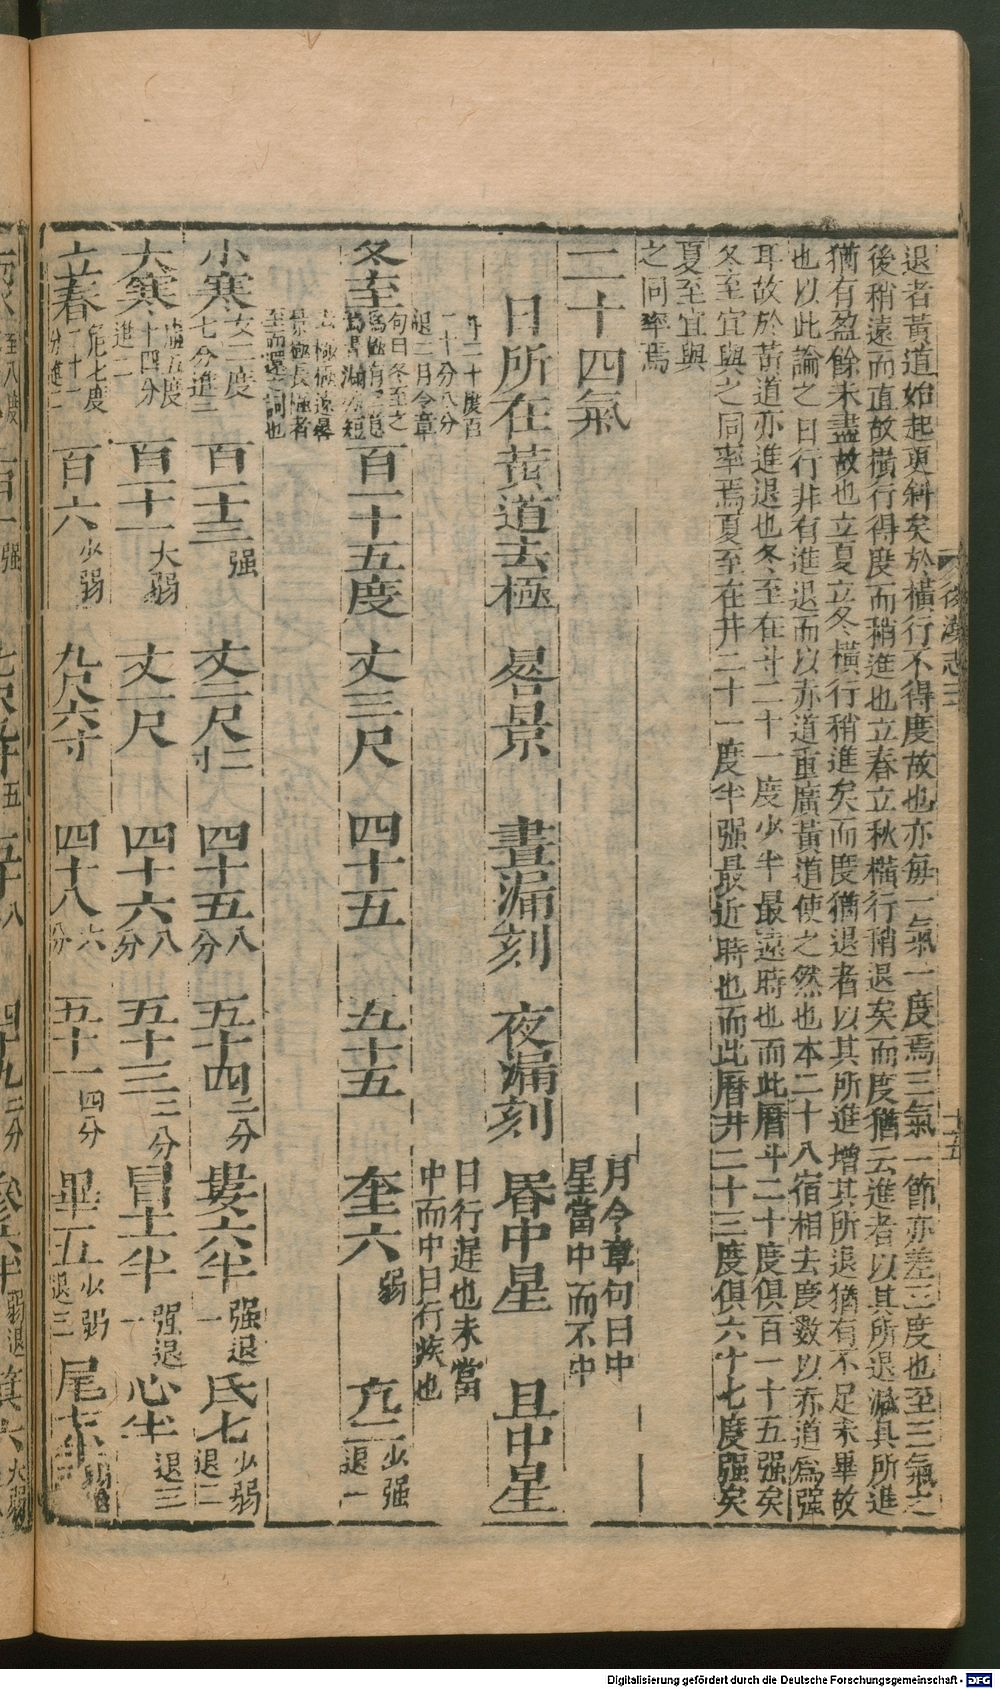 退者黃道始起更斜矣於橫行不得度故也亦每一氣一度焉三氣一節亦差三度也至三氣之
後稍遠而直故橫行得度而稍進也立春立秋橫行稍退矣而度猶云進者以其所退減其所進
猶有盈餘未盡故也立夏立冬橫行稍進矣而度猶退者以其所進增其所退猶有不足未畢故
也以此論之日行非有進退而以赤道重廣黃道使之然也本二十八宿相去度數以赤道爲強
耳故於黃道亦進退也冬至在斗二十一度少半最遠時也而此曆斗二十度俱百一十五強矣
冬至宜與之同率焉夏至在井二十一度半强最近時也而此曆井二十三度俱六十七度强矣
夏至宜與
之同率焉
二十四氣
日所在黃道去極 晷景 晝漏刻 夜漏刻 昬中星 旦中星
月令章句曰中
星當中而不中
日行遲也未當
中而中日行疾也
冬至
百一十五度 丈三尺 四十五 五十五 奎六弱 亢二少强退一
小寒女二度七分進一 百十三强 丈二尺三寸 四十五八分 五十四二分 婁六半强退一 氐七少弱退二
大寒虛五度十四分進二 百十一大弱 丈一尺 四十六八分 五十三二分 胃十一半强退一 心半退三
立春危七度二十一分進二 百六少弱 九尺六寸 四十八六分 五十一四分 畢五少弱退三 尾
後漢志三
十五
Digitalisierung gefördert durch die Deutsche Forschungsgemeinschaft - DFG